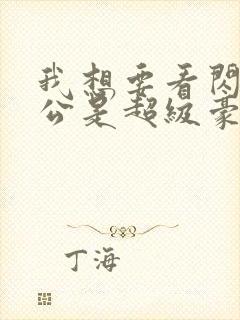 我想要看閃
公是超級豪
丁海